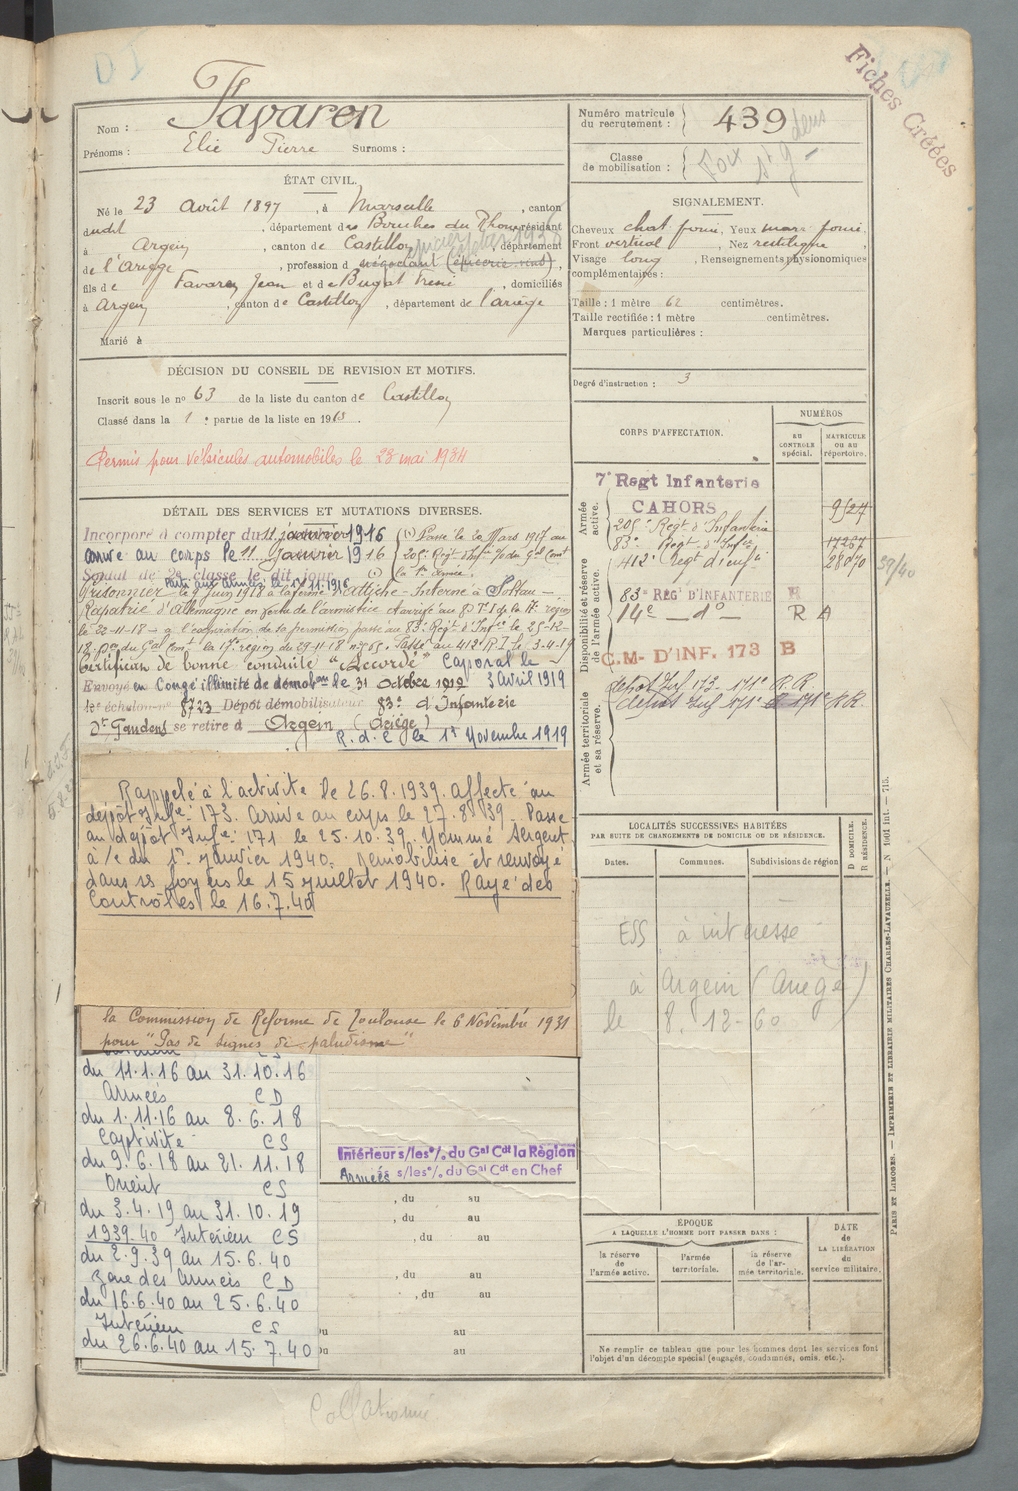 D I
Fiches Créées
Nom : Favaren
Prénoms : Elie Pierre Surnoms :
Numéro matricule du recrutement : 439
Classe de mobilisation :
ÉTAT CIVIL.
Né le 23 Août 1897, à Marseille, canton
dudit, département des Bouches du Rhône, résidant
à Argein, canton de Castillon, département
de l'Ariège, profession de négociant (épicerie-vins),
fils de Favaren Jean et de Bugat, domiciliés
à Argein, canton de Castillon, département de l'Ariège
Marié à
SIGNALEMENT.
Cheveux chat. foncé, Yeux mar. foncé,
Front vertical, Nez rectiligne,
Visage long, Renseignements physionomiques
complémentaires :
Taille : 1 mètre 62 centimètres.
Taille rectifiée : 1 mètre centimètres.
Marques particulières :
Degré d'instruction : 3
DÉCISION DU CONSEIL DE REVISION ET MOTIFS.
Inscrit sous le no 63 de la liste du canton de Castillon
Classé dans la 1e partie de la liste en 19
Permis pour véhicules automobiles le 28 mai 1934
DÉTAIL DES SERVICES ET MUTATIONS DIVERSES.
Incorporé à compter du 11 janvier 1916
arrivé au corps le 11 Janvier 1916
Soldat de 2e classe le dit jour
Parti aux Armées le 1.11.1916
(1) Passé le 20 Mars 1917 au
205e Régt d'Infie
la 1e Armée.
Prisonnier le 9 juin 1918 à la ferme d'Attiche - Interné à Soltau -
Rapatrié d'Allemagne
le 22-11-18
passé au 83e Régt d'Infie le 25-12-
18. Passé au 412e R I le 3-4-19
Certificat de bonne conduite "Accordé" Caporal le
3 avril 1919
Envoyé en Congé illimité de démobon le 31 Octobre 1919
échelon no 8723 Dépôt démobilisateur 83e d'Infanterie
St Gaudens se retire à Argein (Ariège)
R.d.C le 1er Novembre 1919
Rappelé à l'activité le 26.8.1939. affecté au
dépôt Infie 173. Arrivé au corps le 27.8.39. Passé
au dépôt Infie 171 le 25.10.39. Nommé Sergent
à /c du 1er Janvier 1940. Démobilisé et renvoyé
dans ses foyers le 15 juillet 1940. Rayé des
Contrôles le 16.7.40
la Commission de Réforme de Toulouse le 6 Novembre 1931
pour "Pas de signes de paludisme"
Intérieur CS
du 11.1.16 au 31.10.16
Armées CD
du 1.11.16 au 8.6.18
Captivité CS
du 9.6.18 au 21.11.18
Orient CS
du 3.4.19 au 31.10.19
1939-40 Intérieur CS
du 2.9.39 au 15.6.40
Zone des Armées CD
du 16.6.40 au 25.6.40
Intérieur CS
du 26.6.40 au 15.7.40
Intérieur s/les °/. du Gal Cdt la Région
Armées s/les °/. du Gal Cdt en Chef
, du au
, du au
, du au
, du au
, du au
du au
du au
CORPS D'AFFECTATION.
NUMÉROS
AU CONTROLE spécial.
MATRICULE OU AU répertoire.
Armée active.
7e Regt Infanterie
CAHORS
205e Régt d'Infanterie
83e Régt d'Infie
412e Régt d'Infie
Disponibilité et réserve de l'armée active.
83e RÉGt D'INFANTERIE R
14e - do - R A
C.M- D'INF. 173 B
Armée territoriale et sa réserve.
LOCALITÉS SUCCESSIVES HABITÉES
PAR SUITE DE CHANGEMENTS DE DOMICILE OU DE RÉSIDENCE.
Dates. Communes. Subdivisions de région
D DOMICILE. R RÉSIDENCE.
ESS à intéressé
à Argein (Ariège)
le 8.12-60
ÉPOQUE
A LAQUELLE L'HOMME DOIT PASSER DANS :
la réserve de l'armée active.
l'armée territoriale.
la réserve de l'armée territoriale.
DATE de LA LIBÉRATION du service militaire.
Ne remplir ce tableau que pour les hommes dont les services font
l'objet d'un décompte spécial (engagés, condamnés, omis, etc.).
PARIS ET LIMOGES. — IMPRIMERIE ET LIBRAIRIE MILITAIRES CHARLES-LAVAUZELLE. — N 1001 int. — 715.
Collationné